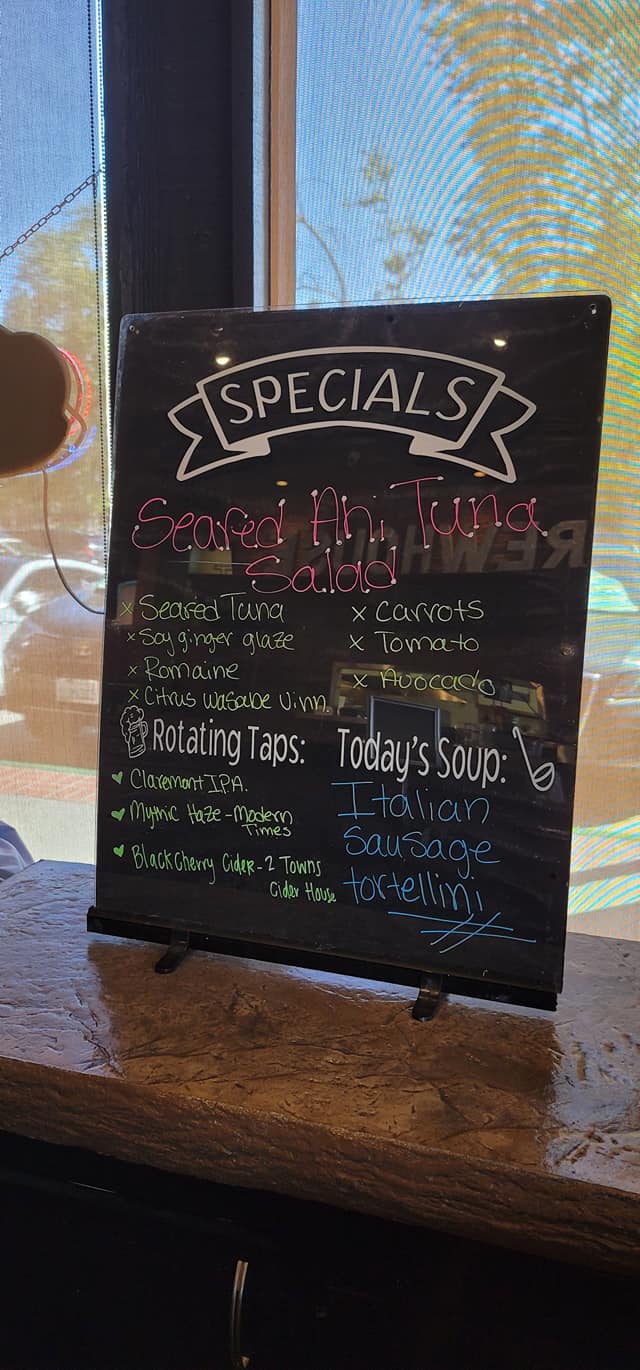 SPECIALS
Seared Ahi Tuna
Salad
x Seared Tuna
x Soy ginger glaze
x Romaine
x Citrus Wasabe Vinn.
x Carrots
x Tomato
x Avocado
Rotating Taps:
Claremont IPA.
Mythic Haze - Modern
Times
Black Cherry Cider - 2 Towns
Cider House
Today's Soup:
Italian
Sausage
tortellini
REWHOUS